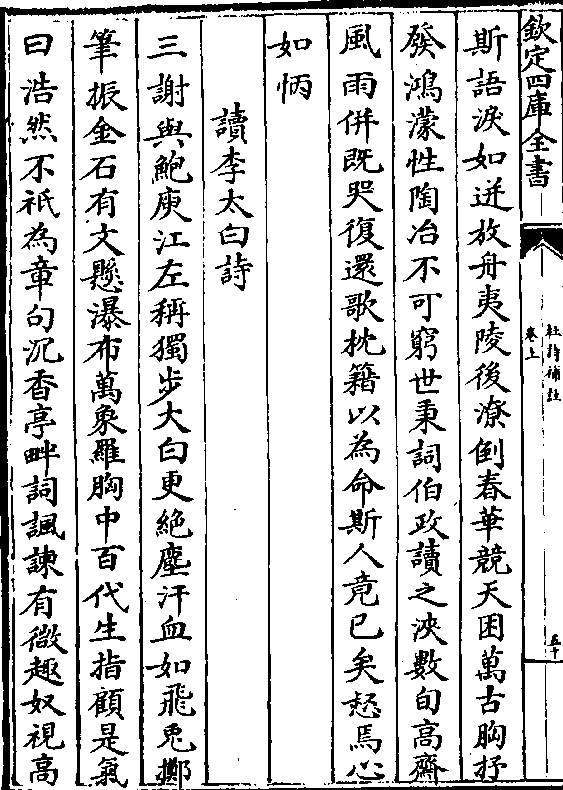 欽定四庫全書
杜詩補註
卷上
五十
斯語淚如迸放舟夷陵後潦倒春華競天困萬古胸抒
發鴻濛性陶冶不可窮世秉詞伯政讀之浹數旬高齋
風雨併既哭復還歌枕籍以為命斯人竟已矣惄焉心
如怲
讀李太白詩
三謝與鮑庾江左稱獨步大白更絶塵汗血如飛兎擲
筆振金石有文懸瀑布萬象羅胸中百代生指顧是氣
曰浩然不祇為章句沉香亭畔詞諷諫有微趣奴視高